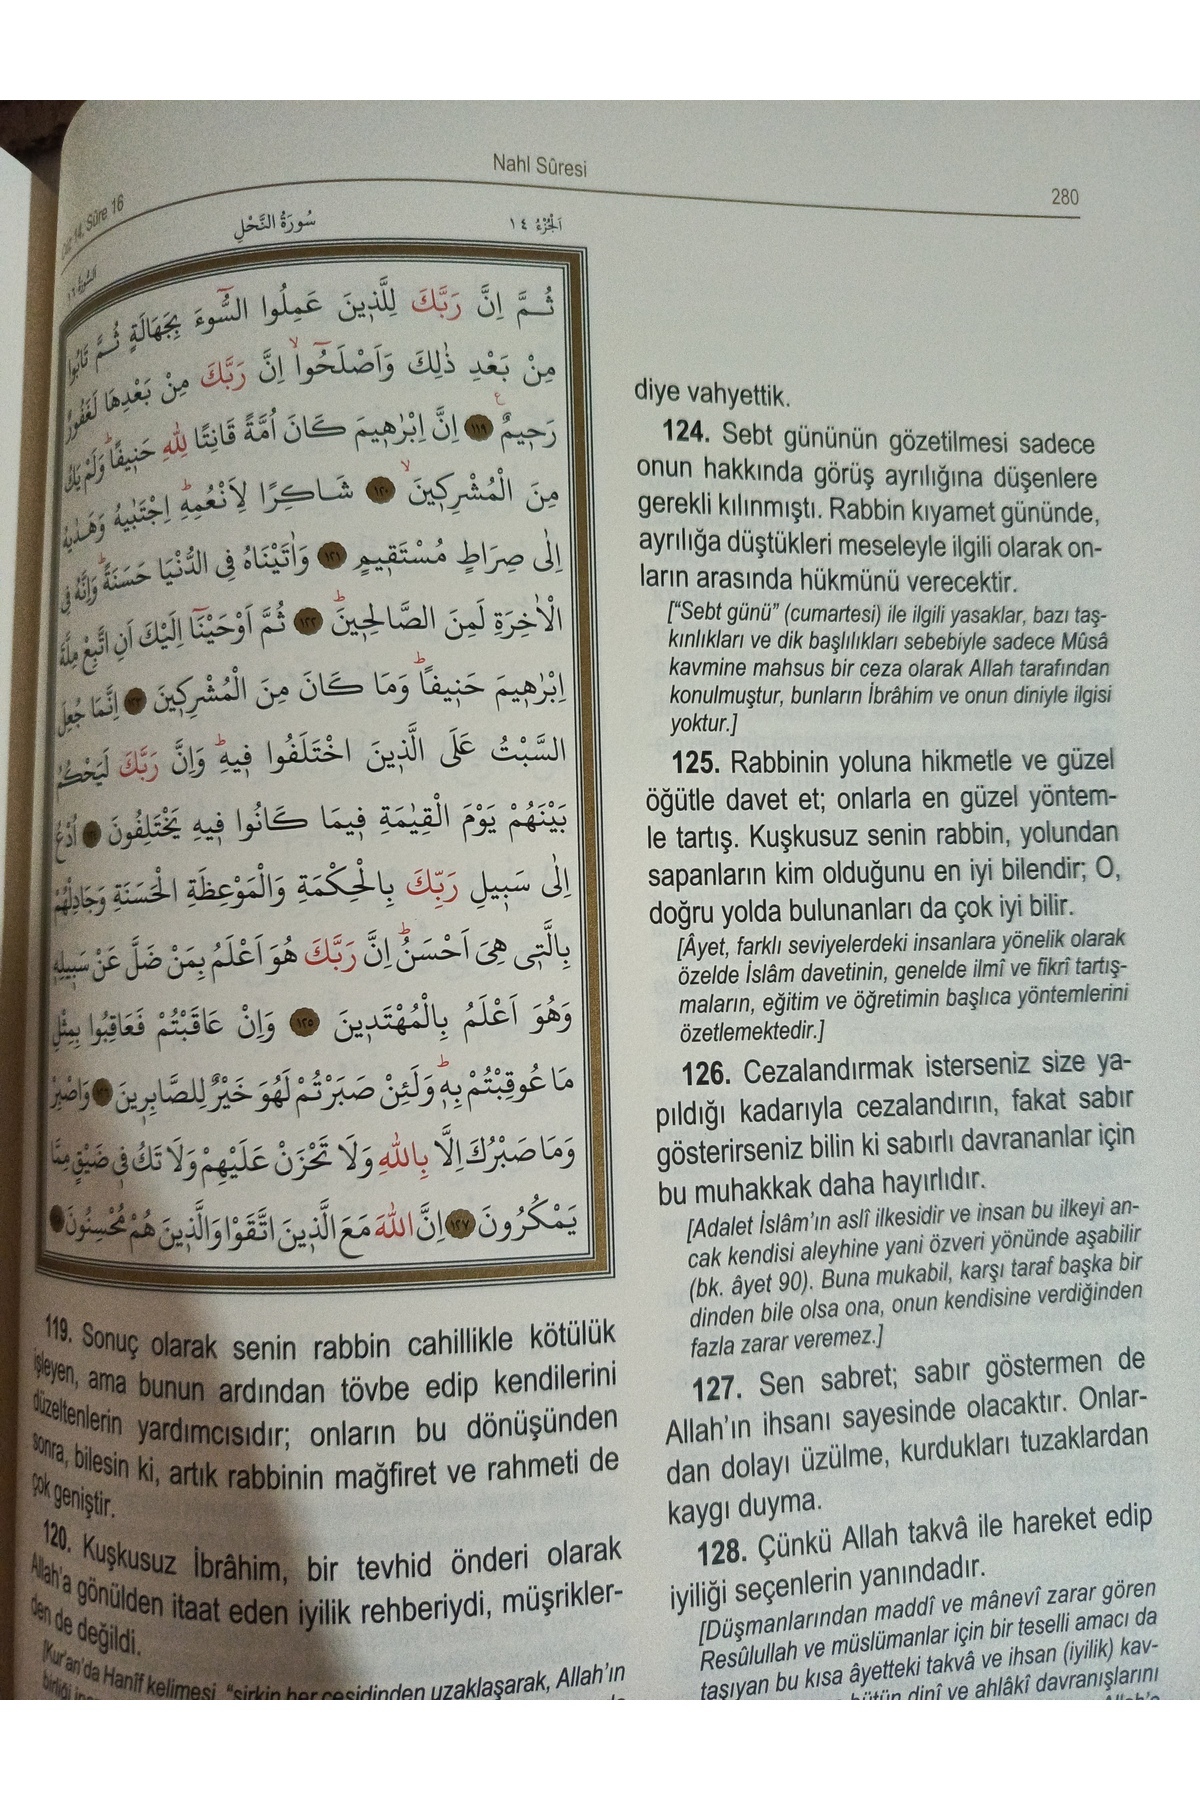 Nahl Sûresi
280
Cüz 14, Sûre 16
اَلْجُزْءُ ١٤
سُورَةُ النَّحْلِ
اَلسُّورَةُ ١٦
ثُمَّ اِنَّ رَبَّكَ لِلَّذ۪ينَ عَمِلُوا السُّٓوءَ بِجَهَالَةٍ ثُمَّ تَابُوا
مِنْ بَعْدِ ذٰلِكَ وَاَصْلَحُٓواۙ اِنَّ رَبَّكَ مِنْ بَعْدِهَا لَغَفُورٌ
رَح۪يمٌ ﴿١١٩﴾ اِنَّ اِبْرٰه۪يمَ كَانَ اُمَّةً قَانِتًا لِلّٰهِ حَن۪يفًاۜ وَلَمْ يَكُ
مِنَ الْمُشْرِك۪ينَۙ ﴿١٢٠﴾ شَاكِرًا لِاَنْعُمِهِۜ اِجْتَبٰيهُ وَهَدٰيهُ
اِلٰى صِرَاطٍ مُسْتَق۪يمٍ ﴿١٢١﴾ وَاٰتَيْنَاهُ فِي الدُّنْيَا حَسَنَةًۜ وَاِنَّهُ فِي
الْاٰخِرَةِ لَمِنَ الصَّالِح۪ينَۜ ﴿١٢٢﴾ ثُمَّ اَوْحَيْنَٓا اِلَيْكَ اَنِ اتَّبِعْ مِلَّةَ
اِبْرٰه۪يمَ حَن۪يفًاۜ وَمَا كَانَ مِنَ الْمُشْرِك۪ينَ ﴿١٢٣﴾ اِنَّمَا جُعِلَ
السَّبْتُ عَلَى الَّذ۪ينَ اخْتَلَفُوا ف۪يهِۜ وَاِنَّ رَبَّكَ لَيَحْكُمُ
بَيْنَهُمْ يَوْمَ الْقِيٰمَةِ ف۪يمَا كَانُوا ف۪يهِ يَخْتَلِفُونَ ﴿١٢٤﴾ اُدْعُ
اِلٰى سَب۪يلِ رَبِّكَ بِالْحِكْمَةِ وَالْمَوْعِظَةِ الْحَسَنَةِ وَجَادِلْهُمْ
بِالَّت۪ي هِيَ اَحْسَنُۜ اِنَّ رَبَّكَ هُوَ اَعْلَمُ بِمَنْ ضَلَّ عَنْ سَب۪يلِه۪
وَهُوَ اَعْلَمُ بِالْمُهْتَد۪ينَ ﴿١٢٥﴾ وَاِنْ عَاقَبْتُمْ فَعَاقِبُوا بِمِثْلِ
مَا عُوقِبْتُمْ بِه۪ۜ وَلَئِنْ صَبَرْتُمْ لَهُوَ خَيْرٌ لِلصَّابِر۪ينَ ﴿١٢٦﴾ وَاصْبِرْ
وَمَا صَبْرُكَ اِلَّا بِاللّٰهِ وَلَا تَحْزَنْ عَلَيْهِمْ وَلَا تَكُ ف۪ي ضَيْقٍ مِمَّا
يَمْكُرُونَ ﴿١٢٧﴾ اِنَّ اللّٰهَ مَعَ الَّذ۪ينَ اتَّقَوْا وَالَّذ۪ينَ هُمْ مُحْسِنُونَ
119. Sonuç olarak senin rabbin cahillikle kötülük
işleyen, ama bunun ardından tövbe edip kendilerini
düzeltenlerin yardımcısıdır; onların bu dönüşünden
sonra, bilesin ki, artık rabbinin mağfiret ve rahmeti de
çok geniştir.
120. Kuşkusuz İbrâhim, bir tevhid önderi olarak
Allah'a gönülden itaat eden iyilik rehberiydi, müşrikler-
den de değildi.
[Kur'an'da Hanîf kelimesi, "şirkin her çeşidinden uzaklaşarak, Allah'ın
diye vahyettik.
124. Sebt gününün gözetilmesi sadece
onun hakkında görüş ayrılığına düşenlere
gerekli kılınmıştı. Rabbin kıyamet gününde,
ayrılığa düştükleri meseleyle ilgili olarak on-
ların arasında hükmünü verecektir.
["Sebt günü" (cumartesi) ile ilgili yasaklar, bazı taş-
kınlıkları ve dik başlılıkları sebebiyle sadece Mûsâ
kavmine mahsus bir ceza olarak Allah tarafından
konulmuştur, bunların İbrâhim ve onun diniyle ilgisi
yoktur.]
125. Rabbinin yoluna hikmetle ve güzel
öğütle davet et; onlarla en güzel yöntem-
le tartış. Kuşkusuz senin rabbin, yolundan
sapanların kim olduğunu en iyi bilendir; O,
doğru yolda bulunanları da çok iyi bilir.
[Âyet, farklı seviyelerdeki insanlara yönelik olarak
özelde İslâm davetinin, genelde ilmî ve fikrî tartış-
maların, eğitim ve öğretimin başlıca yöntemlerini
özetlemektedir.]
126. Cezalandırmak isterseniz size ya-
pıldığı kadarıyla cezalandırın, fakat sabır
gösterirseniz bilin ki sabırlı davrananlar için
bu muhakkak daha hayırlıdır.
[Adalet İslâm'ın aslî ilkesidir ve insan bu ilkeyi an-
cak kendisi aleyhine yani özveri yönünde aşabilir
(bk. âyet 90). Buna mukabil, karşı taraf başka bir
dinden bile olsa ona, onun kendisine verdiğinden
fazla zarar veremez.]
127. Sen sabret; sabır göstermen de
Allah'ın ihsanı sayesinde olacaktır. Onlar-
dan dolayı üzülme, kurdukları tuzaklardan
kaygı duyma.
128. Çünkü Allah takvâ ile hareket edip
iyiliği seçenlerin yanındadır.
[Düşmanlarından maddî ve mânevî zarar gören
Resûlullah ve müslümanlar için bir teselli amacı da
taşıyan bu kısa âyetteki takvâ ve ihsan (iyilik) kav-
bütün dinî ve ahlâkî davranışlarını